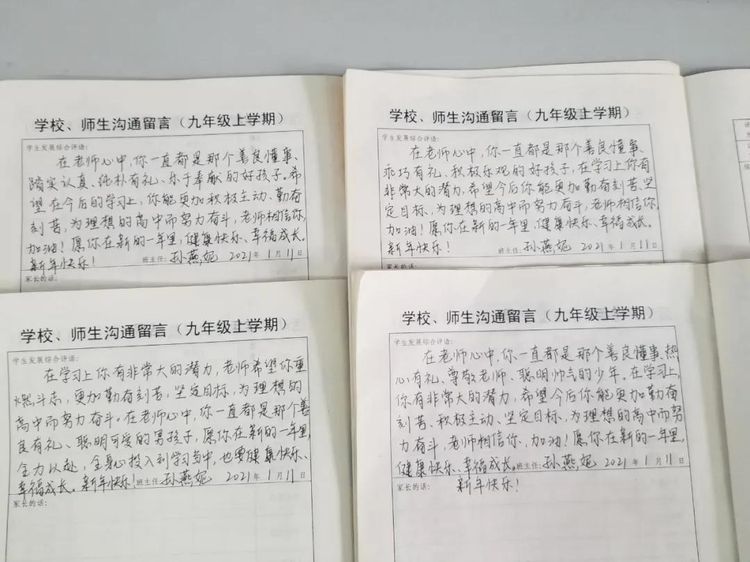 学校、师生沟通留言（九年级上学期）
学生发展综合评语：
在老师心中，你一直都是那个善良懂事、
踏实认真、纯朴有礼、乐于奉献的好孩子。希
望在今后的学习上，你能更加积极主动、勤奋
刻苦，为理想的高中而努力奋斗，老师相信你，
加油！愿你在新的一年里，健康快乐、幸福成长。
新年快乐！ 班主任：孙燕妮 2021年1月11日
家长的话：
学校、师生沟通留言（九年级上学期）
学生发展综合评语：
在老师心中，你一直都是那个善良懂事、
乖巧有礼、积极乐观的好孩子，在学习上你有
非常大的潜力，希望今后你能更加勤奋刻苦、坚
定目标，为理想的高中而努力奋斗，老师相信你，
加油！愿你在新的一年里，健康快乐、幸福成长。
新年快乐！ 班主任：孙燕妮 2021年1月11日
家长的话：
学校、师生沟通留言（九年级上学期）
学生发展综合评语：
在学习上你有非常大的潜力，老师希望你重
燃斗志，更加勤奋刻苦，坚定目标，为理想的
高中而努力奋斗。在老师心中，你一直都是那个善
良有礼、聪明可爱的男孩子，愿你在新的一年里，
全力以赴，全身心投入到学习当中，也要健康快乐、
幸福成长。新年快乐！班主任：孙燕妮 2021年1月11日
家长的话：
学校、师生沟通留言（九年级上学期）
学生发展综合评语：
在老师心中，你一直都是那个善良懂事、热
心有礼、尊敬老师、聪明帅气的少年。在学习上，
你有非常大的潜力，希望今后你能更加勤奋
刻苦、积极主动、坚定目标，为理想的高中而努
力奋斗，老师相信你，加油！愿你在新的一年里，
健康快乐、幸福成长。班主任：孙燕妮 2021年1月11日
家长的话： 新年快乐！